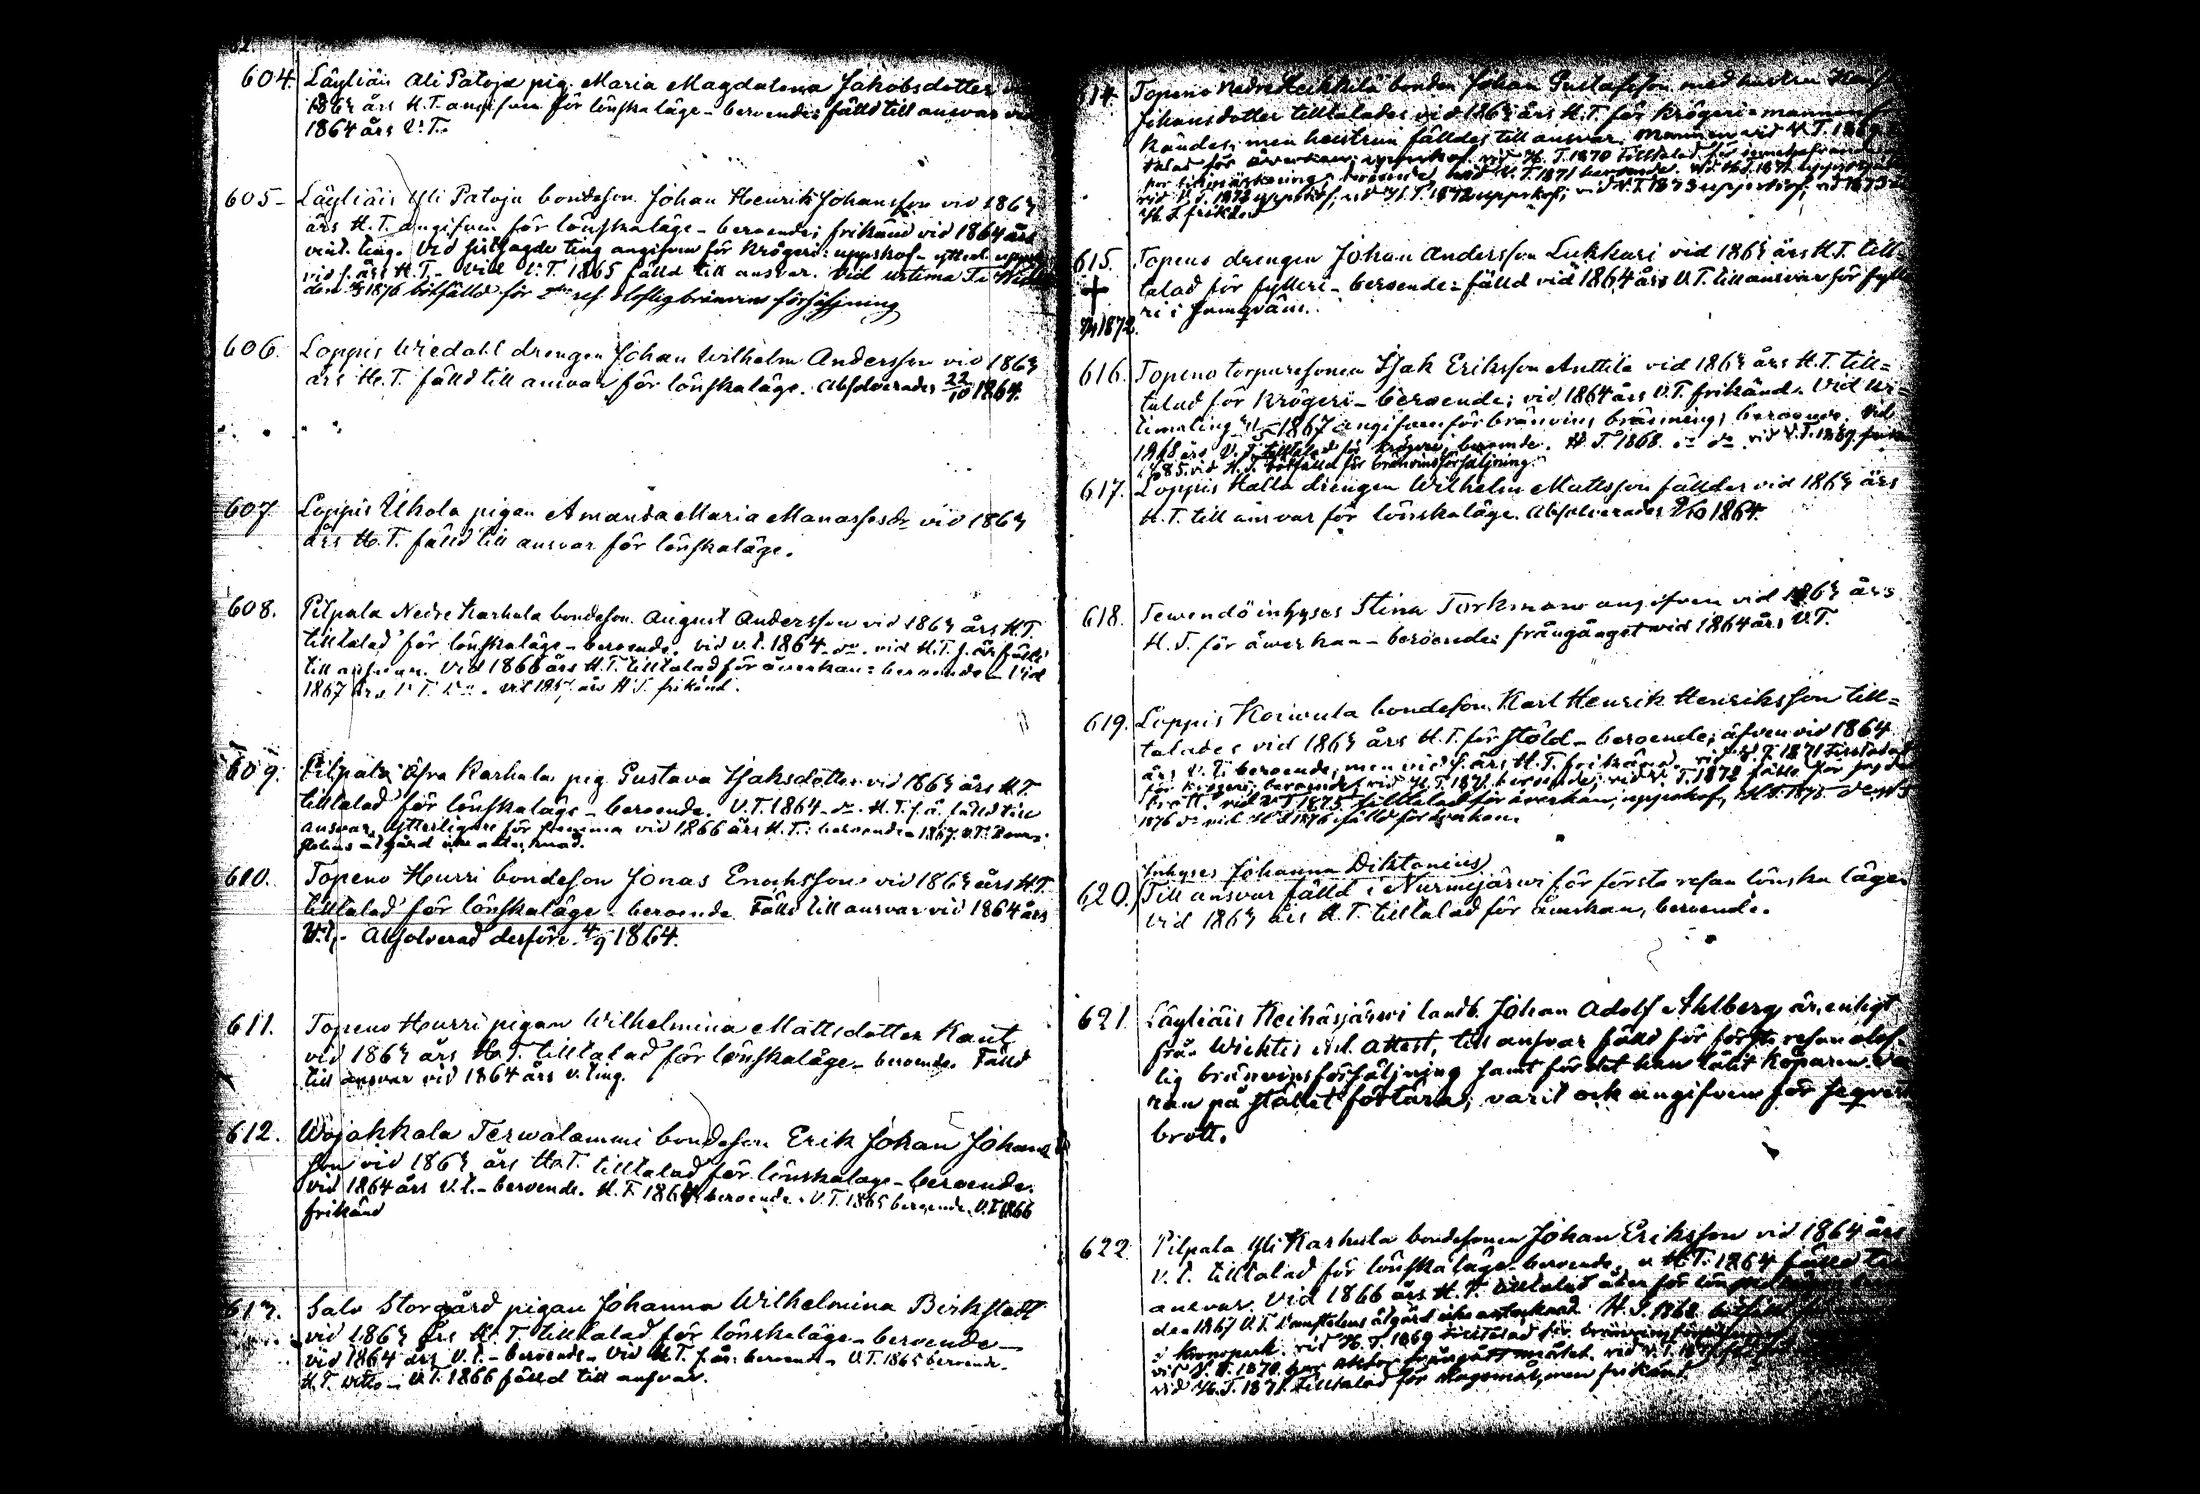 604. Läyliäis Ali Patoja pig. Maria Magdalena Jakobsdotter
1863 års H.T. angifven för lönskaläge - beroende; fälld till ansvar vid
1864 års V.T.
605 - Läyliäis Yli Patoja bondeson Johan Henrik Johansson vid 1863
års H.T. angifven för lönskaläge - beroende; frikänd vid 1864 års
vint. ting. Vid sistsagde ting angifven för krögeri: uppskof -
vid s. års H.T. - Vid V.T. 1865 fälld till ansvar. Vid urtima
1876 bötfälld för oloflig bränvins försäljning
606. Loppis Wiedahl drengen Johan Wilhelm Andersson vid 1863
års H.T. fälld till ansvar för lönskaläge. Absolverades 22/10 1864.
607 Loppis Uhola pigan Amanda Maria Manassesdr vid 1863
års H.T. fälld till ansvar för lönskaläge.
608. Pilpala Nedre Karhula bondeson August Andersson vid 1863 års H.T.
tilltalad för lönskaläge - beroende. vid v.t. 1864 do. vid H.T. s. år fälld
till ansvar. Vid 1866 års H.T. tilltalad för åverkan: beroende - Vid
1867 års V.T. do. vid 1867 års H.T. frikänd.
609. Pilpala Öfre Karhula pig. Gustava Isaksdotter vid 1863 års H.T.
tilltalad för lönskaläge - beroende. V.T. 1864 - do - H.T. s.å. fälld till
ansvar. ytterligare för samma vid 1866 års H.T.: beroende - 1867 V.T.
åtgärd icke antecknad.
610. Topeno Hurri bondeson Jonas Enochsson vid 1863 års H.T.
tilltalad för lönskaläge - beroende. Fälld till ansvar vid 1864 års
V.t. - Absolverad derföre 4/9 1864.
611. Topeno Hurri pigan Wilhelmina Mattsdotter Kant
vid 1863 års H.T. tilltalad för lönskaläge - beroende. Fälld
till ansvar vid 1864 års v. ting.
612. Wojakkala Terwalammi bondeson Erik Johan Johans
son vid 1863 års H.T. tilltalad för lönskaläge - beroende.
vid 1864 års V.t. - beroende. H.T. 1864 beroende. V.T. 1865 beroende. V.T. 1866
frikänd
613. Salo Storgård pigan Johanna Wilhelmina Birkstedt
vid 1863 års H.T. tilltalad för lönskaläge - beroende -
vid 1864 års V.t. - beroende - Vid H.T. s. år: beroende - V.T. 1865 beroende.
H.T. ditto - V.T. 1866 fälld till ansvar.
614. Topeno Nedre Heikkilä bonden Johan Gustafsson med hustru
Johansdotter tilltalades vid 1863 års H.T. för krögeri - mannen
kändes, men hustrun fälldes till ansvar. Mannen vid V.T.
talad för åverkan; uppskof. vid H.T. 1870 tilltalad för
beroende, vid V.T. 1871 beroende. vid H.T. 1871
vid V.T. 1872 uppskof; vid H.T. 1872 uppskof; vid V.T. 1873 uppskof; vid 1873
H.T. frikänd
615. Topeno drengen Johan Andersson Lukkari vid 1863 års H.T. till-
talad för fylleri - beroende: fälld vid 1864 års V.T. till ansvar för fylle
ri i
1872
616. Topeno torparesonen Isak Eriksson Anttila vid 1863 års H.T. till=
talad för krögeri - beroende; vid 1864 års V.T. frikänd. Vid ur=
timating 1867 angifven för bränvins bränning, beroende. Vid
1868 års V.T. tilltalad för krögeri, beroende. H.T. 1868. do do. vid V.T. 1869
1885 vid H.T. bötfälld för bränvinsförsäljning.
617. Loppis Halla drengen Wilhelm Mattsson fälldes vid 1863 års
H.T. till ansvar för lönskaläge. Absolverades 1864.
618. Tewendö inhyses Stina Torkman angifven vid 1863 års
H.T. för åwerkan - beroende: frångånget vid 1864 års V.T.
619. Loppis Koiwula bondeson Karl Henrik Henriksson till=
talades vid 1863 års H.T. för stöld - beroende; äfven vid 1864
års V.T. beroende; men vid s. års H.T. frikänd. - vid V.T. 1871 tilltalad
för krögeri, beroende, vid H.T. 1871 beroende; vid V.T. 1872 fälld för
brott. vid V.T. 1875 tilltalad för åverkan, uppskof, H.T. 1875
1876 do vid H.T. 1876 fälld för åverkan.
Inhyses Johanna Diktonius
620. Till ansvar fälld i Nurmijärwi för första resan lönska läge
vid 1863 års H.T. tilltalad för åwerkan, beroende.
621 Läyliäis Keihäsjärwi landb. Johan Adolf Ahlberg är, enligt
från Wichtis attest, till ansvar fälld för första resan olof-
lig bränvinsförsäljning samt för det han låtit köparen
ran på stället förtära; varit ock angifven för
brott.
622 Pilpala Yli Karhula bondesonen Johan Eriksson vid 1864 års
V.t. tilltalad för lönskaläge - beroende. H.T. 1864 fälld till
ansvar. Vid 1866 års H.T. tilltalad åter för
1867 V.T. åtgärd icke antecknad. H.T. 1868
i Kronopark. vid H.T. 1869 tilltalad för
vid V.T. 1870 har målet. vid V.T.
vid H.T. 1871 tilltalad för slagsmål, men frikänd.